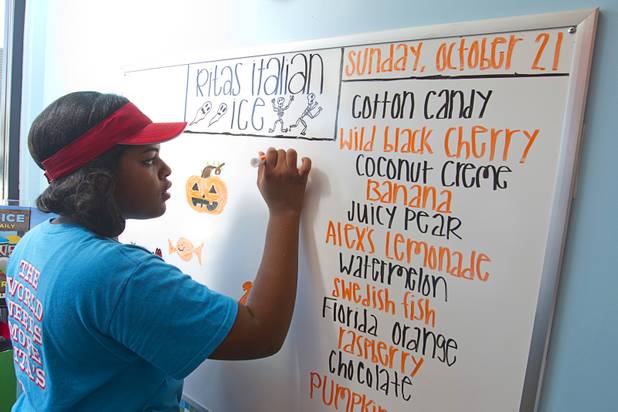 RITAS ITALIAN
ICE
SUNDAY, OCTOBER 21
COTTON CANDY
WILD BLACK CHERRY
COCONUT CREME
BANANA
JUICY PEAR
ALEXS LEMONADE
WATERMELON
SWEDISH FISH
FLORIDA ORANGE
RASPBERRY
CHOCOLATE
PUMPKIN
THE
WORLD
NEEDS
MORE